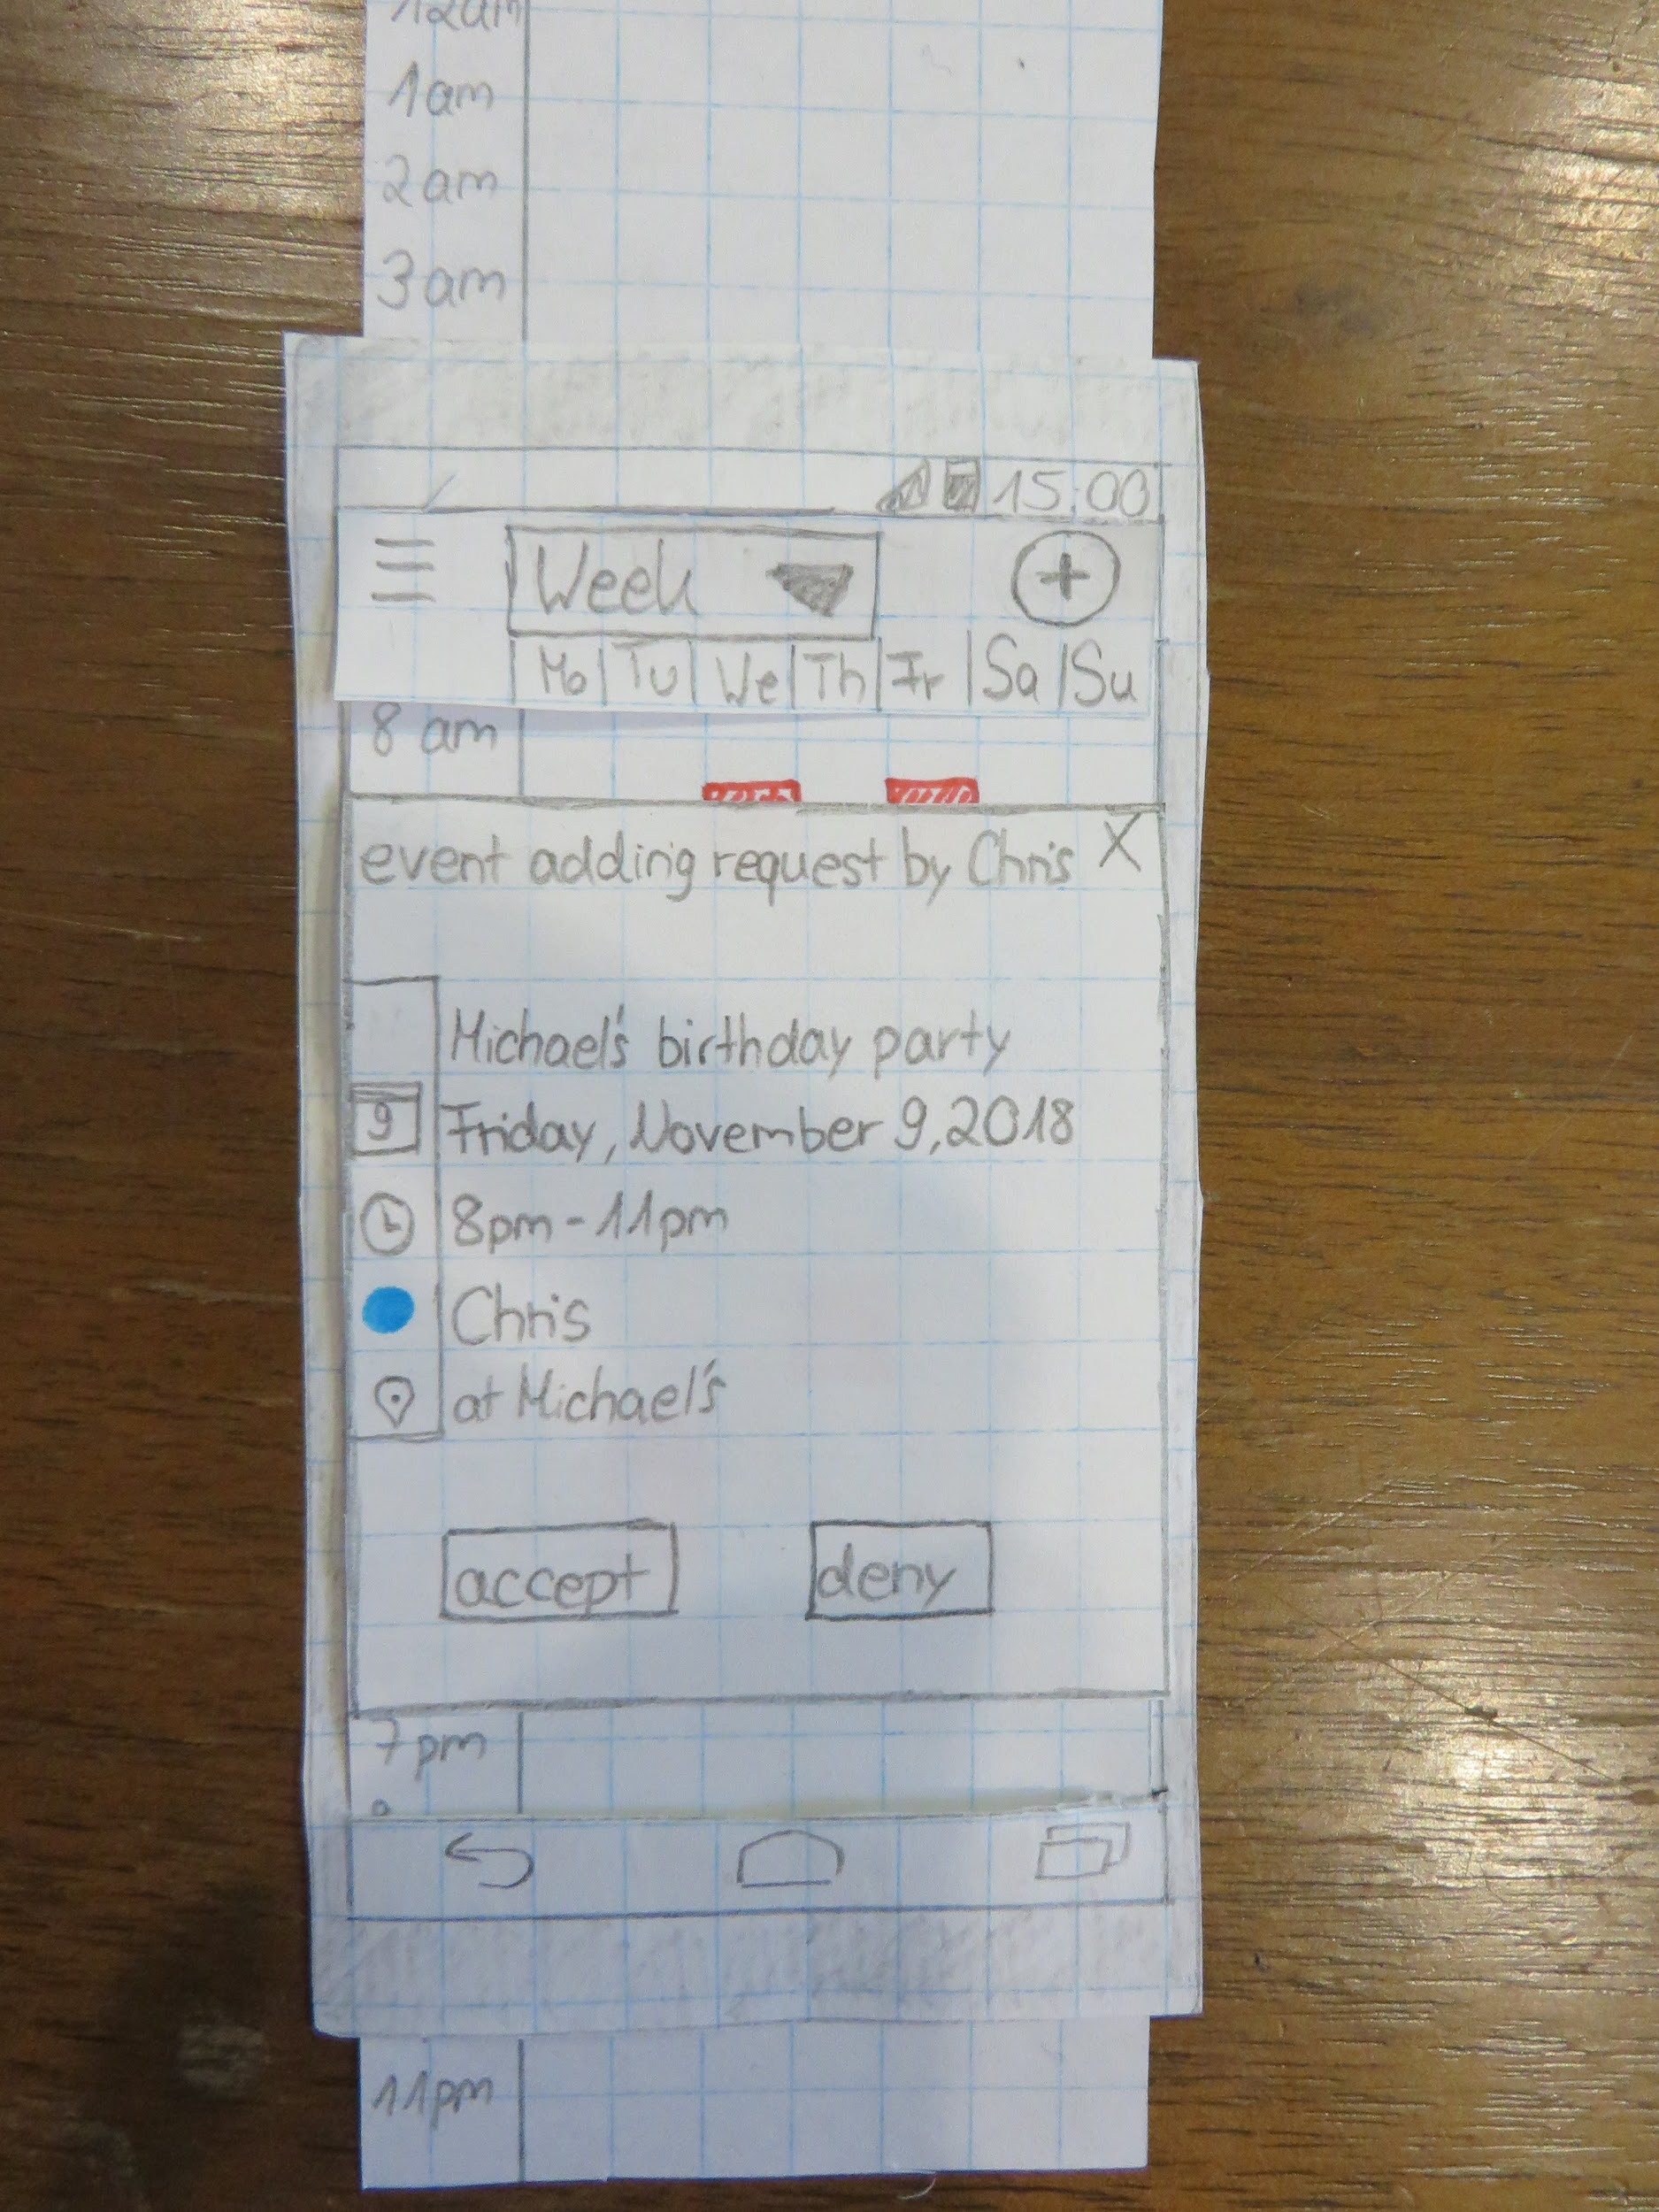 12am
1am
2am
3am
15:00
Week
Mo Tu We Th Fr Sa Su
8 am
event adding request by Chris X
Michael's birthday party
9 Friday, November 9, 2018
8pm - 11pm
Chris
at Michael's
accept deny
7pm
11pm